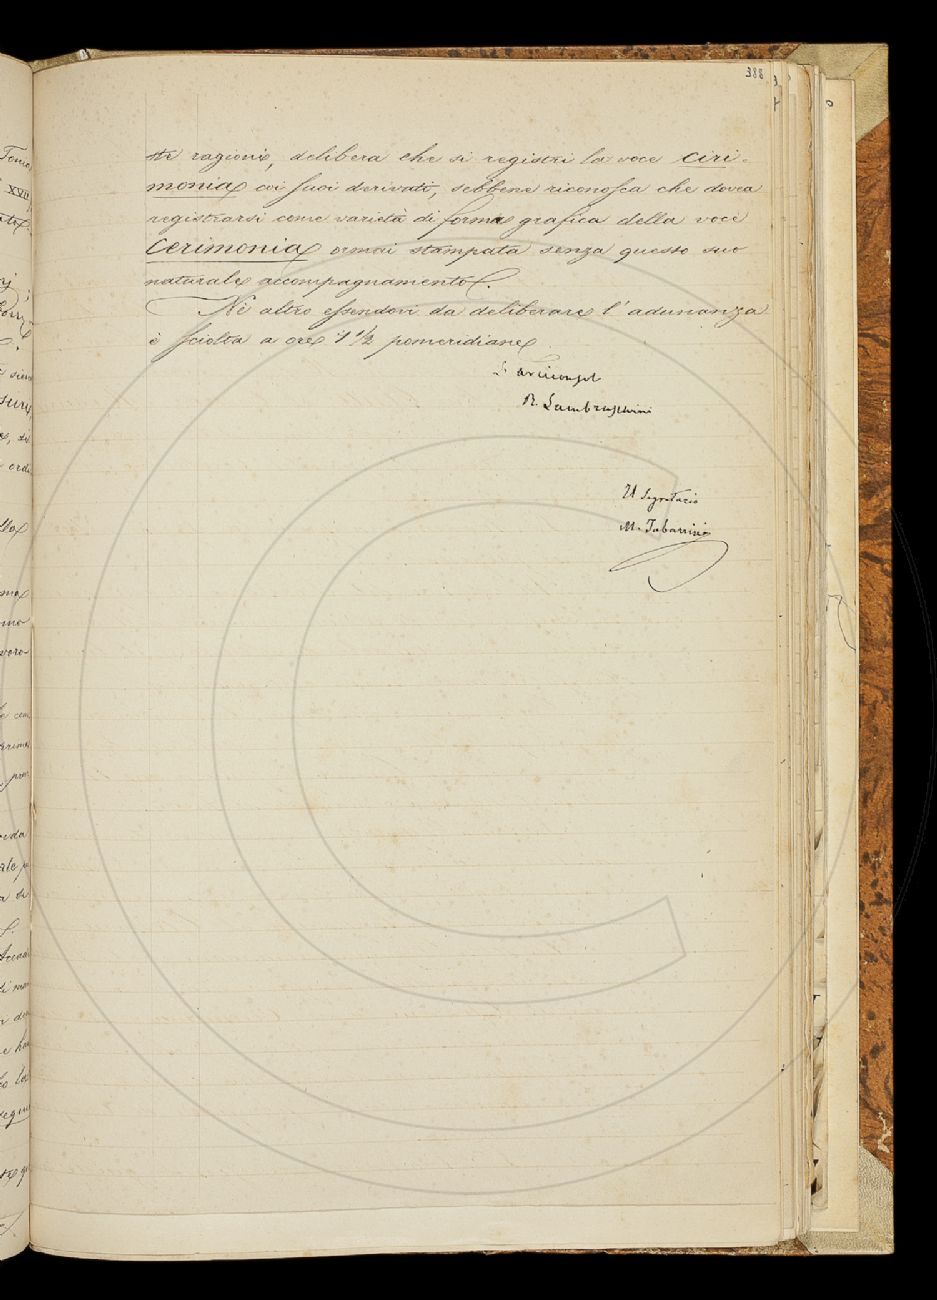 388
ste ragioni, delibera che si registri la voce Ciri-
monia coi suoi derivati, sebbene riconosca che dovea
registrarsi come varietà di forma grafica della voce
Cerimonia ormai stampata senza questo suo
naturale accompagnamento.
Nè altro essendovi da deliberare l'adunanza
è sciolta a ore 1 1/2 pomeridiane
L'Arciconsol
R. Lambruschini
Il Segretario
M. Tabarrini